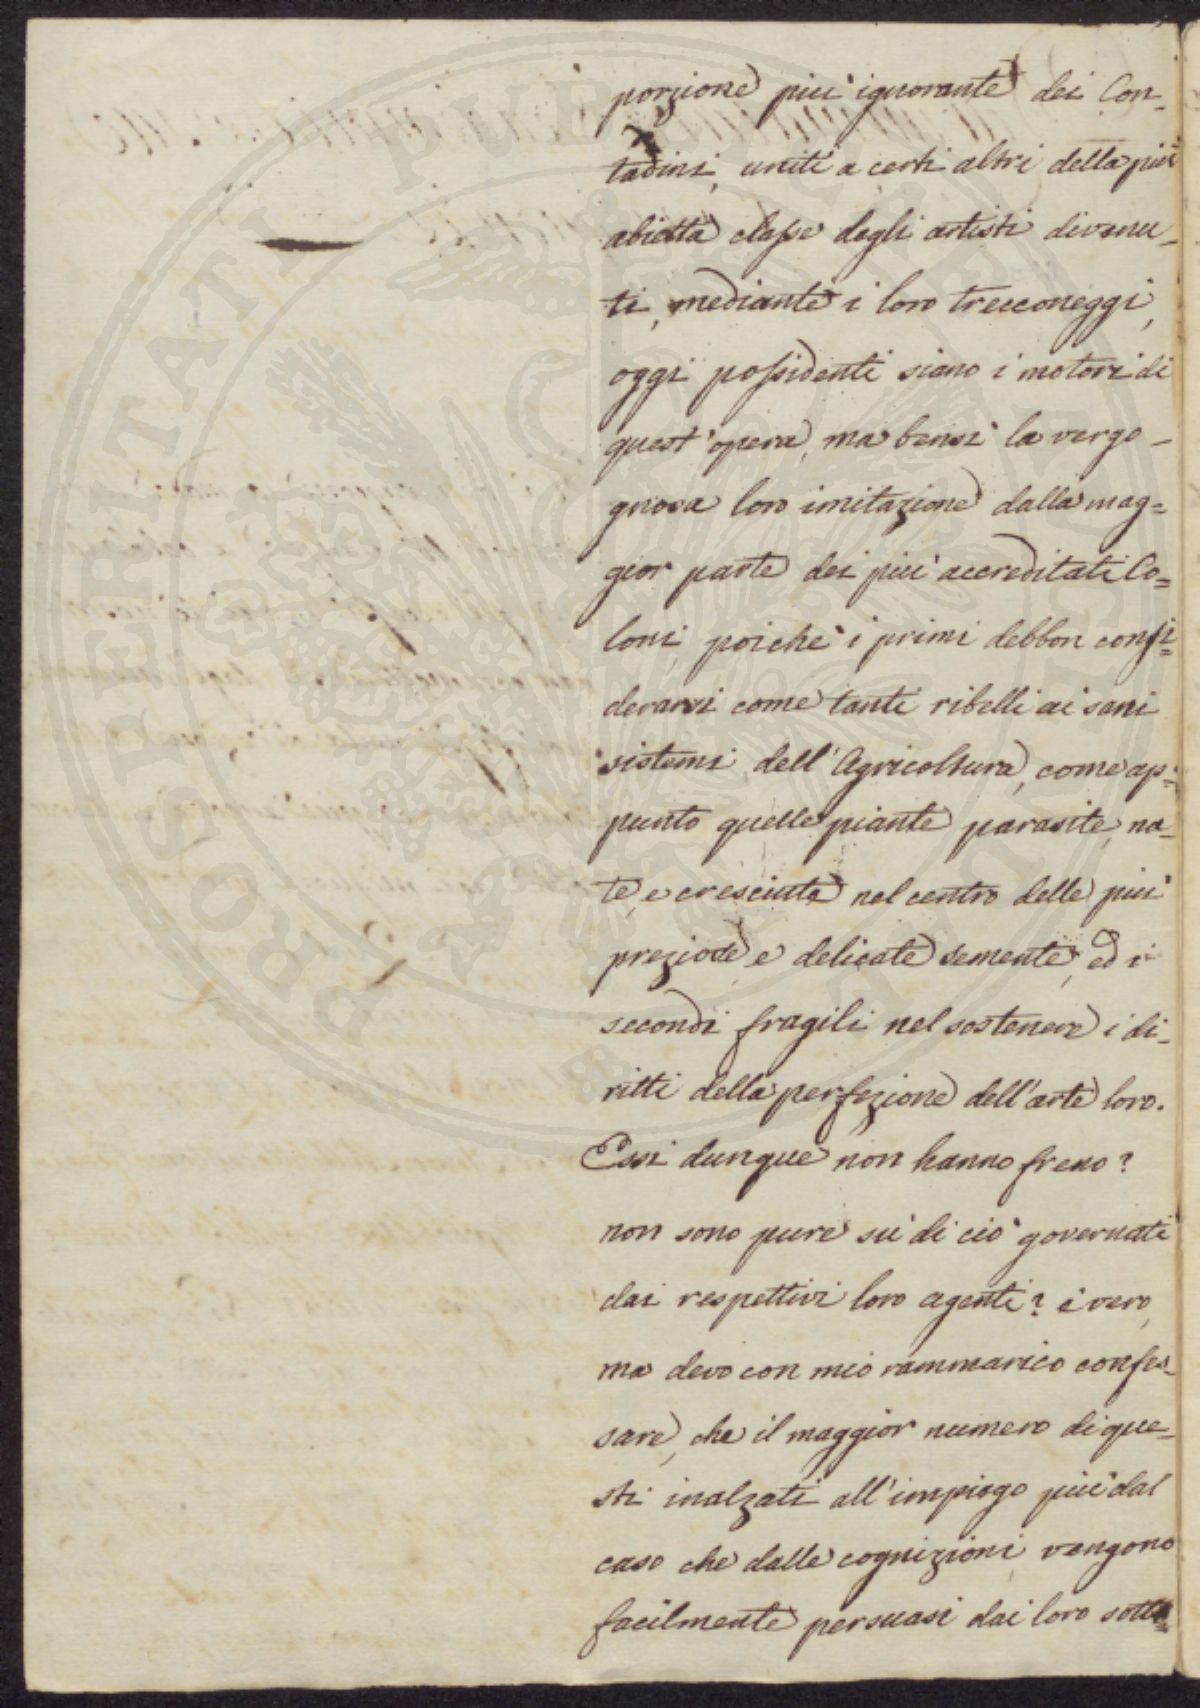 porzione piu' ignorante dei Con-
tadini, uniti a certi altri della piu'
abietta classe degli artisti divenu-
ti, mediante i loro trecconeggi,
oggi possidenti siano i motori di
quest'opera, ma bensi' la vergo-
gnosa loro imitazione dalla mag=
gior parte dei piu' accreditati Co=
loni, poiche' i primi debbon consi=
derarsi come tanti ribelli ai sani
sistemi dell'Agricoltura, come ap=
punto quelle piante parasite, na-
te, e cresciute nel centro delle piu'
preziose, e delicate semente, ed i
secondi fragili nel sostenere i di-
ritti della perfezione dell'arte loro.
Essi dunque non hanno freno?
non sono pure su' di cio' governati
dai respettivi loro agenti? è vero,
ma devo con mio rammarico confes-
sare, che il maggior numero di que-
sti inalzati all'impiego piu' dal
caso che dalle cognizioni, vengono
facilmente persuasi dai loro sotto=
PROSPERITATI PUBLICAE AUGENDAE